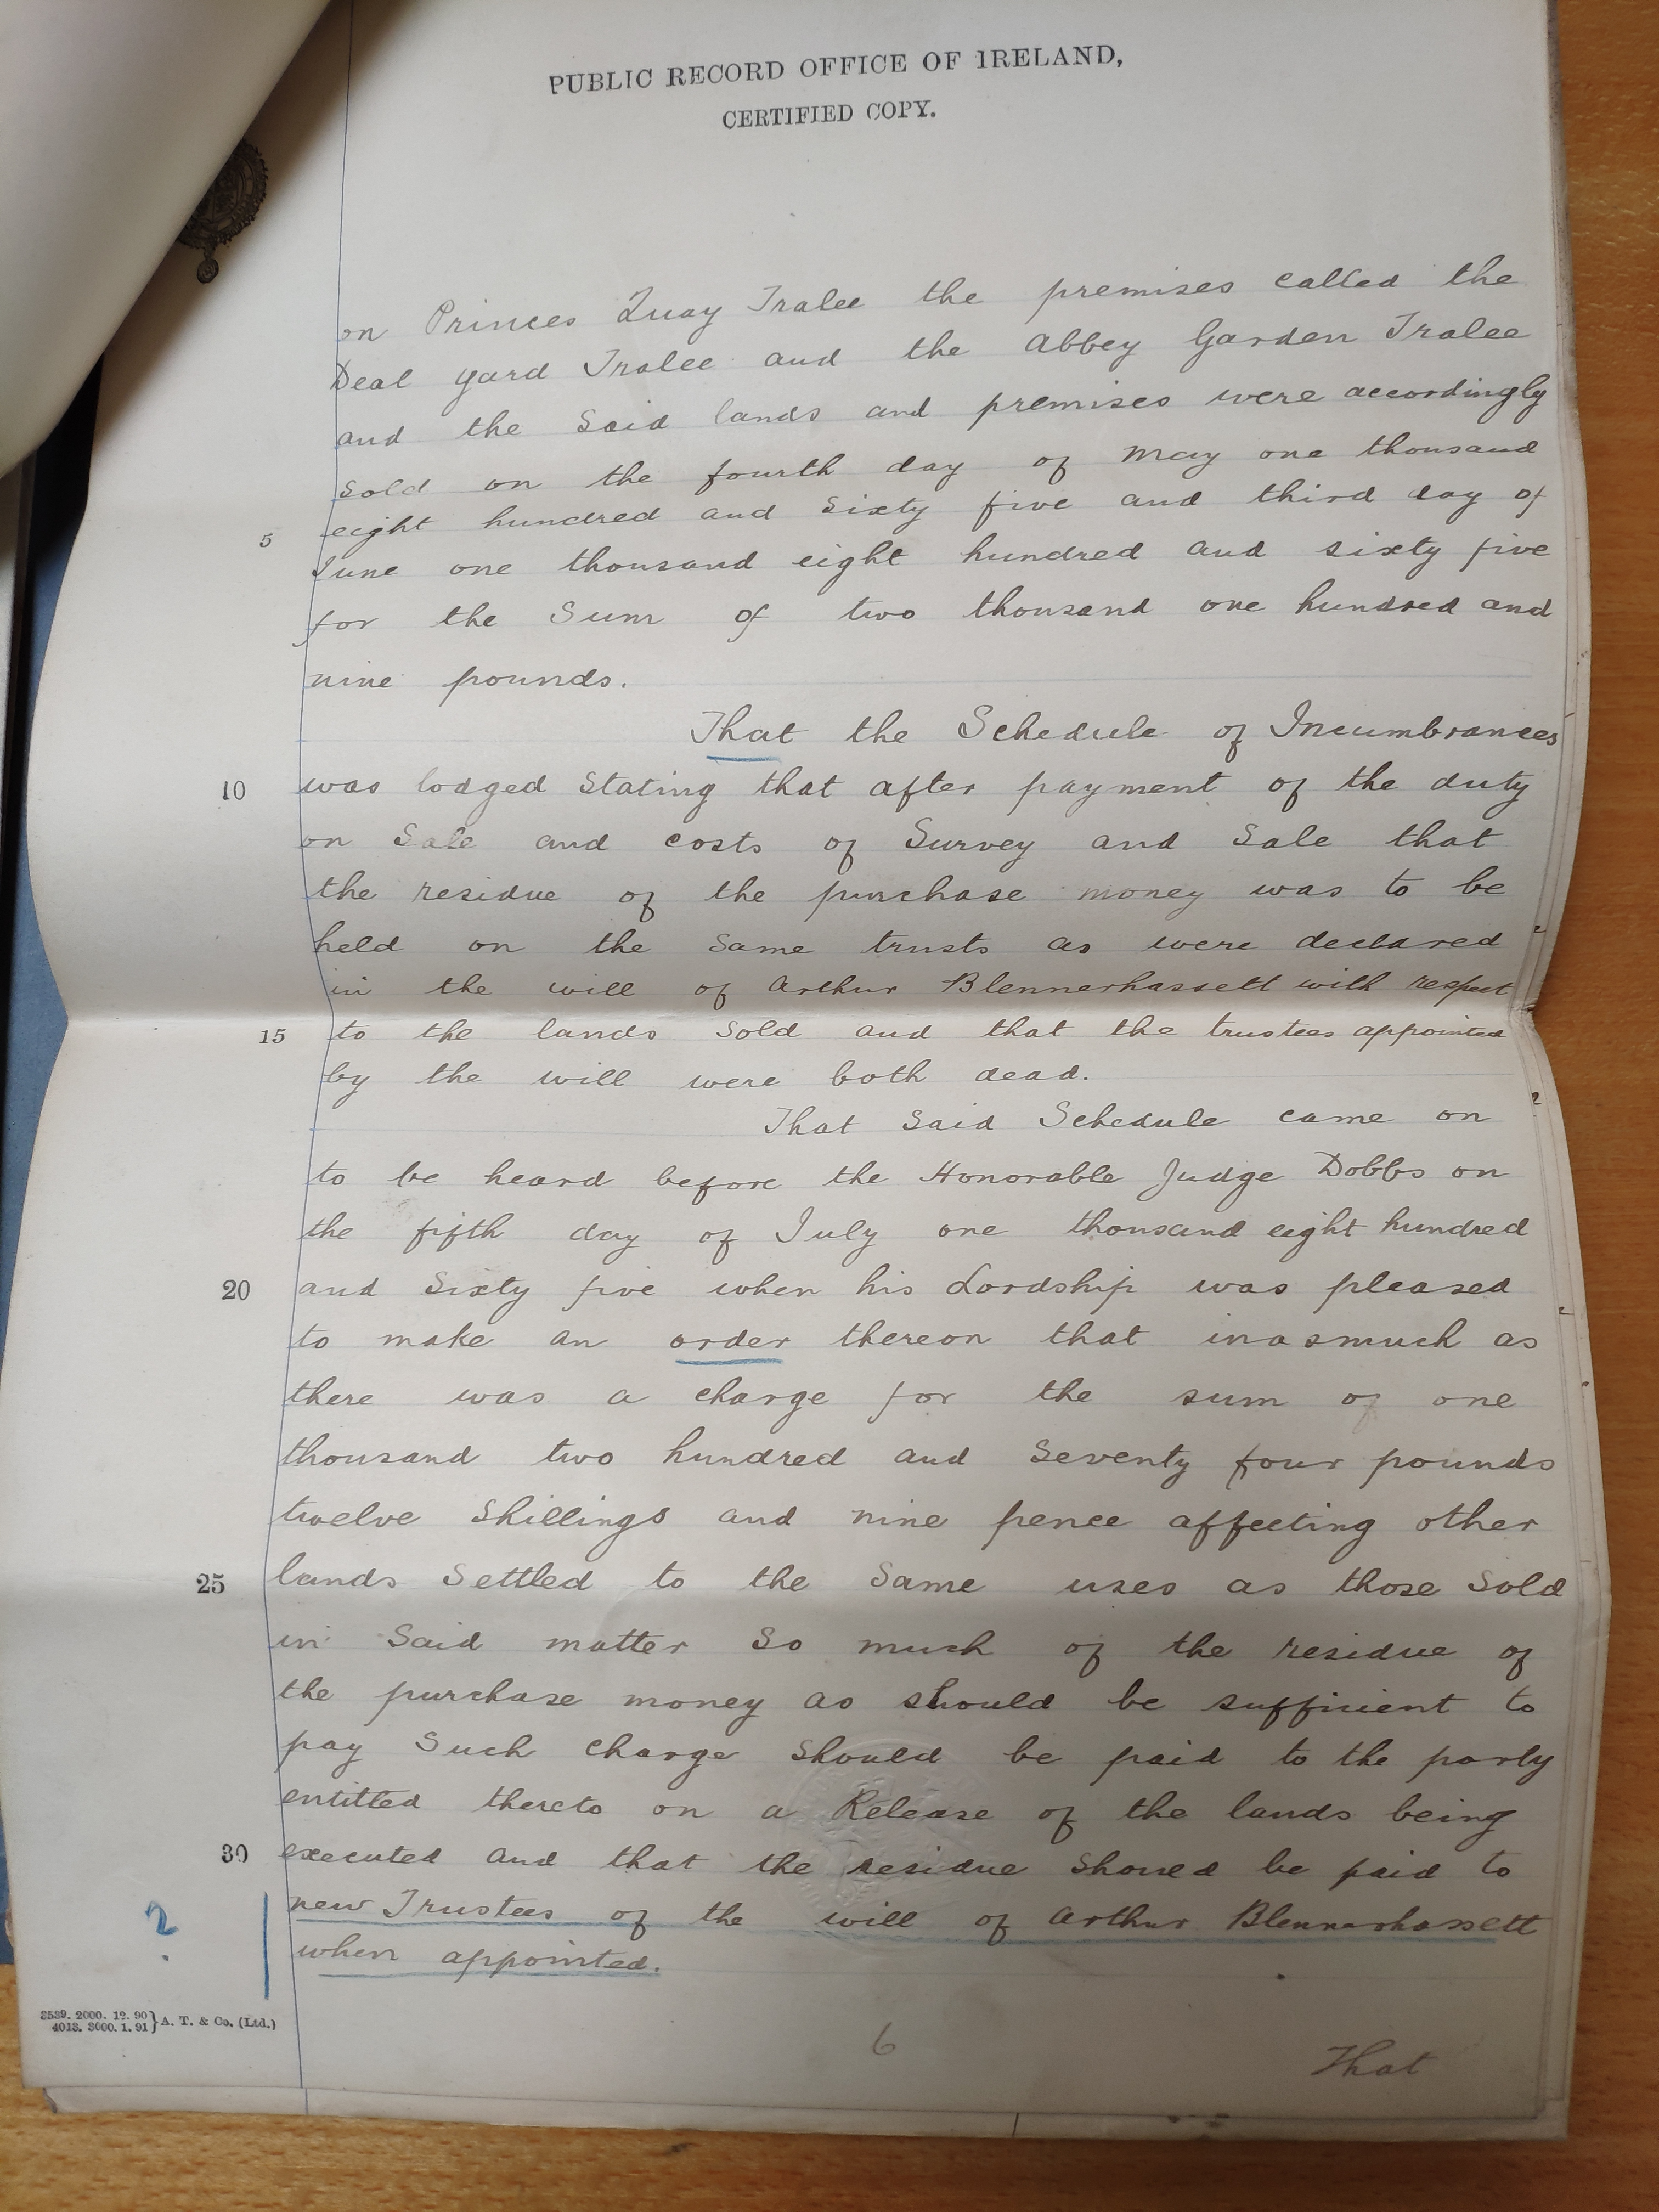 PUBLIC RECORD OFFICE OF IRELAND,
CERTIFIED COPY.
on Princes Quay Tralee the premises called the
Deal yard Tralee and the Abbey Garden Tralee
and the said lands and premises were accordingly
sold on the fourth day of May one thousand
5 eight hundred and sixty five and third day of
June one thousand eight hundred and sixty five
for the sum of two thousand one hundred and
nine pounds.
That the Schedule of Incumbrances
10 was lodged stating that after payment of the duty
on sale and costs of Survey and Sale that
the residue of the purchase money was to be
held on the same trusts as were declared
in the will of Arthur Blennerhassett with respect
15 to the lands sold and that the trustees appointed
by the will were both dead.
That said Schedule came on
to be heard before the Honorable Judge Dobbs on
the fifth day of July one thousand eight hundred
20 and sixty five when his Lordship was pleased
to make an order thereon that inasmuch as
there was a charge for the sum of one
thousand two hundred and seventy four pounds
twelve shillings and nine pence affecting other
25 lands settled to the same uses as those sold
in said matter so much of the residue of
the purchase money as should be sufficient to
pay such charge should be paid to the party
entitled thereto on a Release of the lands being
30 executed and that the residue should be paid to
? new Trustees of the will of Arthur Blennerhassett
when appointed.
3539. 2000. 12. 90 } A. T. & Co. (Ltd.)
4013. 3000. 1. 91
6
That